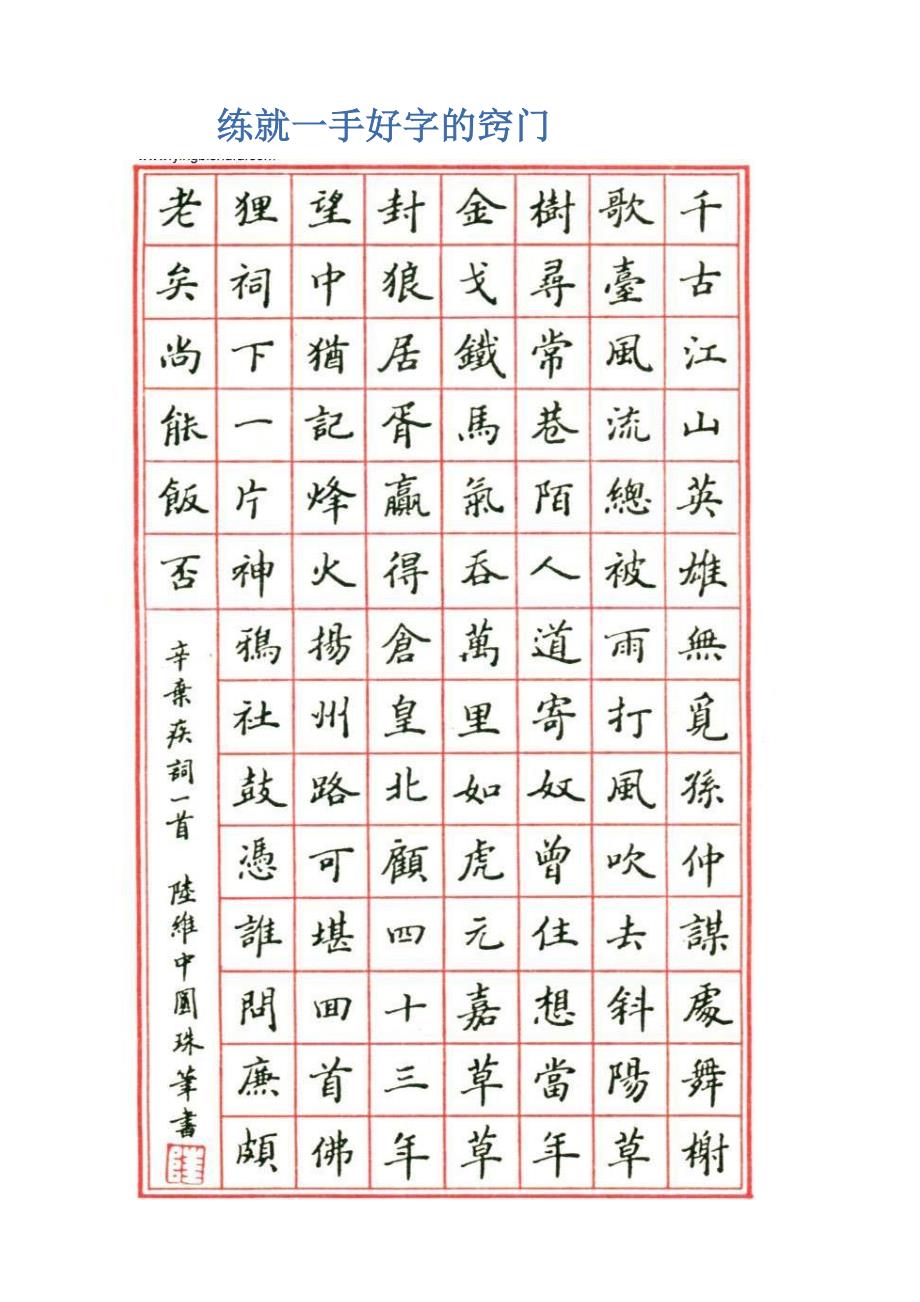 练就一手好字的窍门
千古江山英雄無覓孫仲謀處舞榭
歌臺風流總被雨打風吹去斜陽草
樹尋常巷陌人道寄奴曾住想當年
金戈鐵馬氣吞萬里如虎元嘉草草
封狼居胥贏得倉皇北顧四十三年
望中猶記烽火揚州路可堪回首佛
狸祠下一片神鴉社鼓憑誰問廉頗
老矣尚能飯否
辛棄疾詞一首 陸維中圓珠筆書